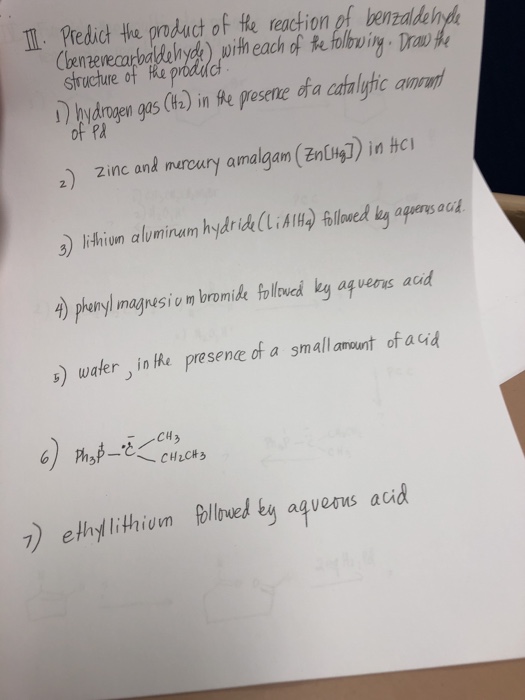 III. Predict the product of the reaction of benzaldehyde
(benzenecarbaldehyde) with each of the following. Draw the
structure of the product.
1) hydrogen gas (H2) in the presence of a catalytic amount
of Pd
2) zinc and mercury amalgam (Zn[Hg]) in HCl
3) lithium aluminum hydride (LiAlH4) followed by aqueous acid.
4) phenyl magnesium bromide followed by aqueous acid
5) water, in the presence of a small amount of acid
6) Ph3P+–C:- CH3
CH2CH3
7) ethyllithium followed by aqueous acid